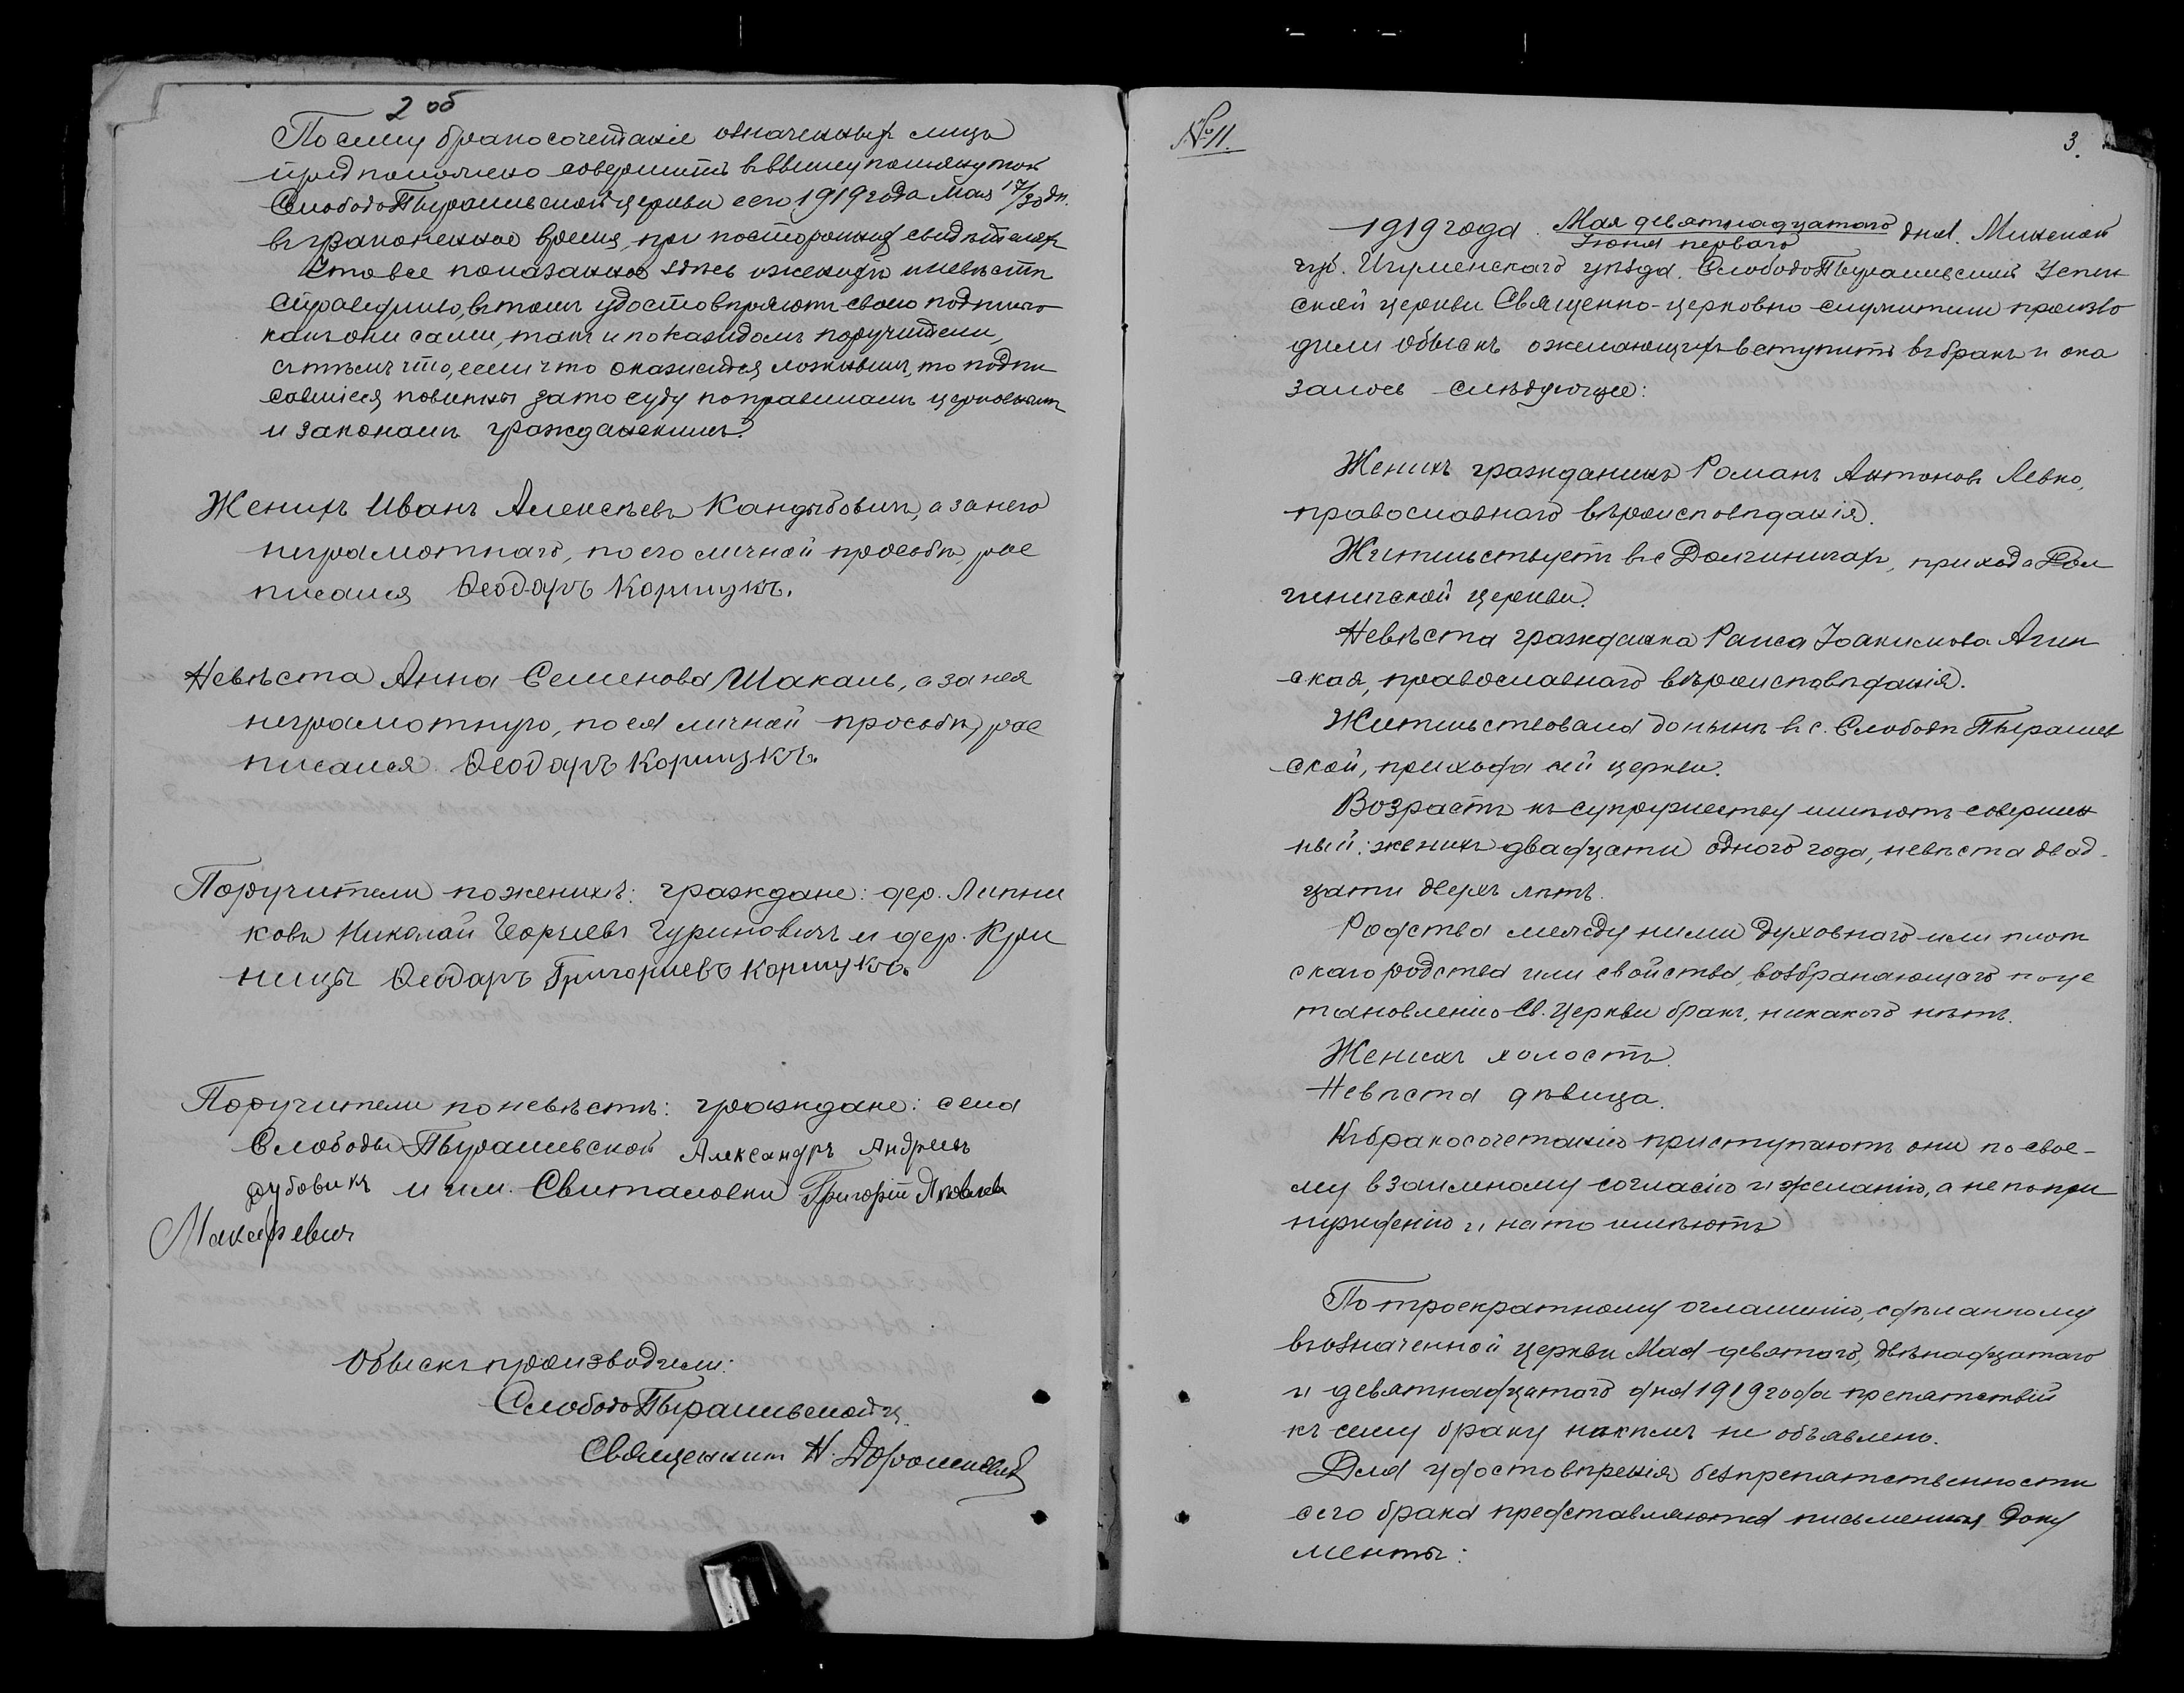 2 об
По сему бракосочетаніе означенныхъ лицъ
предположено совершить въ вышеупомянутой
СлободоПырашевской церкви сего 1919 года Мая 17/30 дн.
въ законенное время, при постороннихъ свидѣтеляхъ
Что все показанное здѣсь о женихѣ и невѣстѣ
справедливо, въ томъ удостовѣряютъ своею подписью
какъ они сами, такъ и по каждомъ поручители,
съ тѣмъ что, если что окажется ложнымъ, то подпи
савшіеся повинны за то суду по правиламъ церковнымъ
и законамъ гражданскимъ.
Женихъ Иванъ Алексѣевъ Кандыбовичъ, а за него
неграмотнаго, по его личной просьбѣ, рос
писался Ѳеодоръ Коршукъ.
Невѣста Анна Семенова Шакаль, а за нея
неграмотную, по ея личной просьбѣ, рос
писался Ѳеодоръ Коршукъ.
Поручители по женихѣ: граждане: дер. Липни
ковъ Николай Георгіевъ Гуриновичъ и дер. Кри
ницы Ѳеодоръ Григориевъ Коршукъ.
Поручители по невѣстѣ: граждане: села
Слободы Пырашевской Александръ Андреевъ
дубовикъ и им. Свиталовки Григорій Яковлевъ
Макаревичъ
Обыскъ производили:
СлободоПырашевской ц.
Священникъ Н.
№ 11.
3.
1919 года Мая девятнадцатаго дня. Минской
Іюня перваго
губ. Игуменскаго уѣзда. СлободоПырашевской Успен
ской церкви Священно-церковно служители произво
дили обыскъ о желающихъ вступить въ бракъ и ока
залось слѣдующее:
Женихъ гражданинъ Романъ Антоновъ Левко,
православнаго вѣроисповѣданія.
Жительствуетъ въ с Долгиничахъ, прихода Дол
гиничской церкви.
Невѣста гражданка Раиса Іоакимова Агин
ская, православнаго вѣроисповѣданія.
Жительствовала донынѣ въ с. Слободѣ Пырашев
ской, прихода сей церкви.
Возрастъ къ супружеству имѣютъ совершен
ный: женихъ двадцати одного года, невѣста двад-
цати двухъ лѣтъ.
Родства между ними духовнаго или плот
скаго родства или свойства, возбраняющаго по ус
тановленію Св. Церкви бракъ, никакого нѣтъ.
Женихъ холостъ.
Невѣста дѣвица.
Къ бракосочетанію приступаютъ они по свое-
му взаимному согласію и желанію, а не по при
нужденію и на то имѣютъ
По троекратному оглашенію, сдѣланному
въ означенной церкви Мая девятаго, двѣнадцатаго
и девятнадцатаго дня 1919 года препятствій
къ сему браку никѣмъ не объявлено.
Для удостовѣренія безпрепятственности
сего брака представляются письменныя доку
менты: